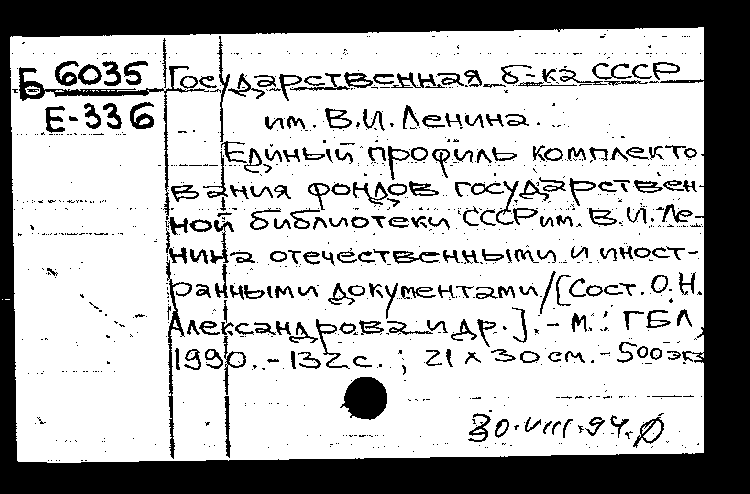 Б 6035
Е-336
Государственная б-ка СССР
им. В.И. Ленина.
Единый профиль комплекто-
вания фондов государствен-
ной библиотеки СССР им. В.И. Ле-
нина отечественными и иност-
ранными документами/[Сост. О.Н.
Александрова и др.]. - М.: ГБЛ,
1990. - 132 с. ; 21 х 30 см. - 500 экз
30.VIII.94.